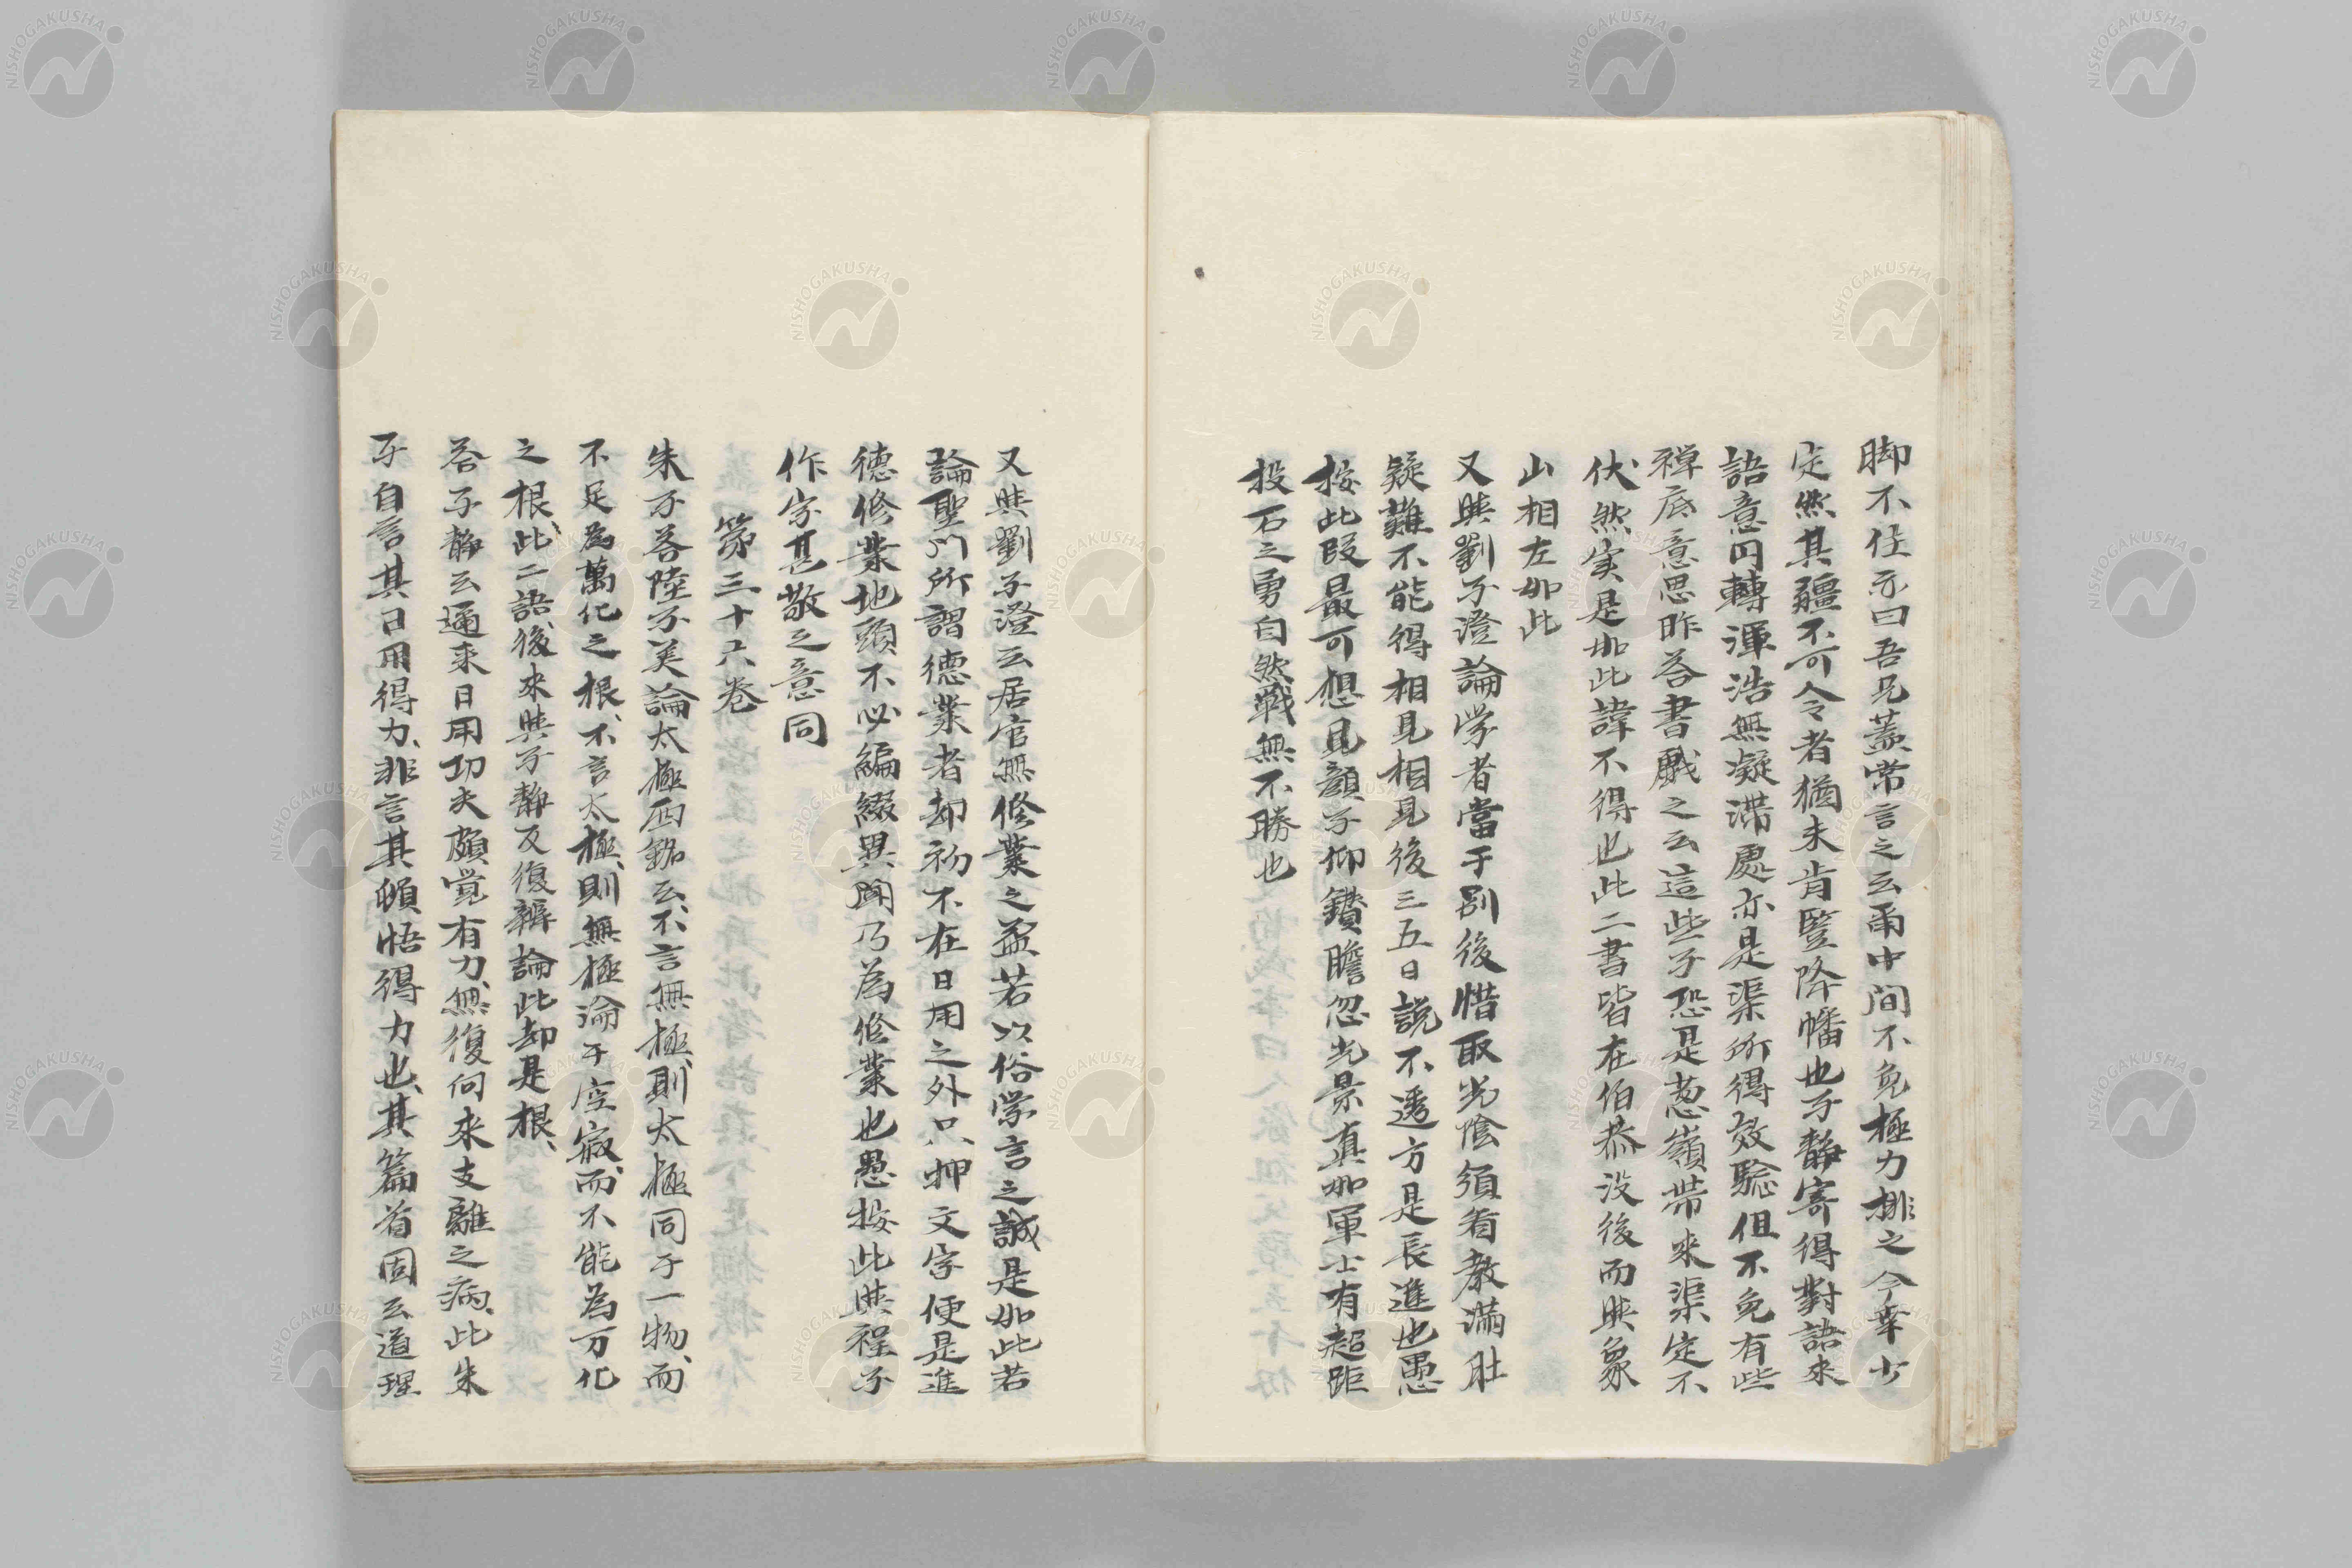 脚不住示曰吾兄蓋常言之云爾中間不免極力排之今幸少
定然其疆不可令者猶未肯竪降幡也子静寄得對語来
語意円轉渾浩無凝滞處亦是渠所得效驗但不免有些
禅底意思昨答書戲之云這些子恐是葱嶺帯来渠定不
伏然実是如此諱不得也此二書皆在伯恭没後而與象
山相左如此
又與劉子澄論学者當于別後惜取光陰須看教滿肚
疑難不能得相見相見後三五日説不透方是長進也愚
按此段最可想見顔子仰鑚瞻忽光景真如軍士有超距
投石之勇自然戦無不勝也
又與劉子澄云居官無修業之益若以俗学言之誠是如此若
論聖門所謂德業者却初不在日用之外只押文字便是進
德修業地頭不必編綴異聞乃為修業也愚按此與程子
作字甚敬之意同
第三十六巻
朱子答陸子美論太極西銘云、不言無極、則太極同于一物、而
不足為萬化之根、不言太極、則無極淪于空寂、而不能為万化
之根、此二語、後来與子静反復辨論此却是根、
答子静云邇来日用功夫頗覚有力、無復向来支離之病、此朱
子自言其日用得力、非言其頓悟得力也、其篇首固云道理
NISHOGAKUSHA